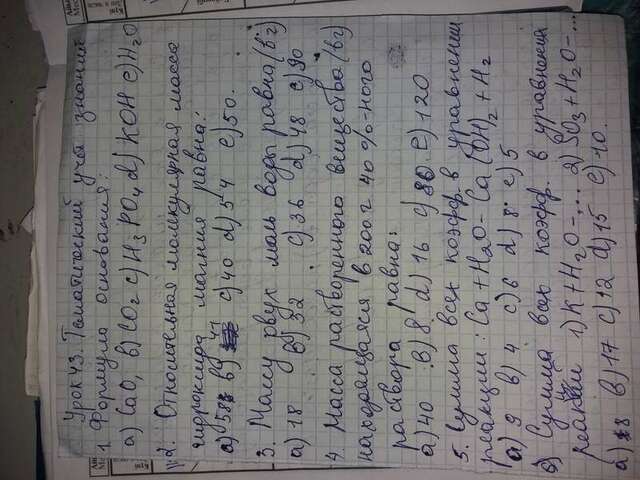 Урок 43. Тематический учет знаний
1 Формула основания:
а) CaO, в) CO2 с) H3PO4 d) KOH е) H2O
2. Относительная молекулярная масса
гидроксида магния равна:
а) 58 в) 41 с) 40 d) 54 е) 50.
3. Массу двух моль воды равна (в г)
а) 18 в) 32 с) 36 d) 48 е) 90
4. Масса растворенного вещества (в г)
находящаяся в 200 г 40 %-ного
раствора равна:
а) 40 в) 8 d) 16 с) 80 е) 120
5. Сумма всех коэфф. в уравнении
реакции: Ca + H2O - Ca(OH)2 + H2
а) 9 в) 4 с) 6 d) 8 е) 5
6) Сумма всех коэфф. в уравнении
реакций 1) K + H2O -,... 2) SO3 + H2O -...
а) 8 в) 17 с) 12 d) 15 е) 10.